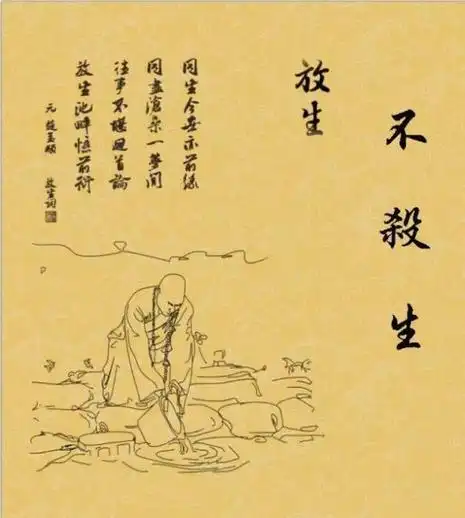 不殺生
放生
同生今世亦前緣
同盡滄桑一夢間
往事不堪迴首論
放生池畔憶前衍
元 趙孟頫 放生詞